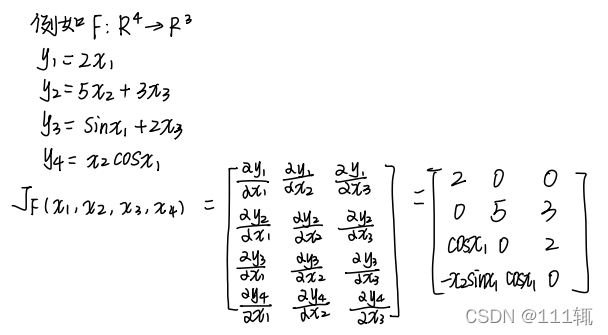 例如 F: R⁴→R³
y₁=2x₁
y₂=5x₂+3x₃
y₃=sinx₁+2x₃
y₄=x₂cosx₁
J_F(x₁,x₂,x₃,x₄) = [∂y₁/∂x₁ ∂y₁/∂x₂ ∂y₁/∂x₃ = [2 0 0
∂y₂/∂x₁ ∂y₂/∂x₂ ∂y₂/∂x₃ 0 5 3
∂y₃/∂x₁ ∂y₃/∂x₂ ∂y₃/∂x₃ cosx₁ 0 2
∂y₄/∂x₁ ∂y₄/∂x₂ ∂y₄/∂x₃] -x₂sinx₁ cosx₁ 0]
CSDN @111辄